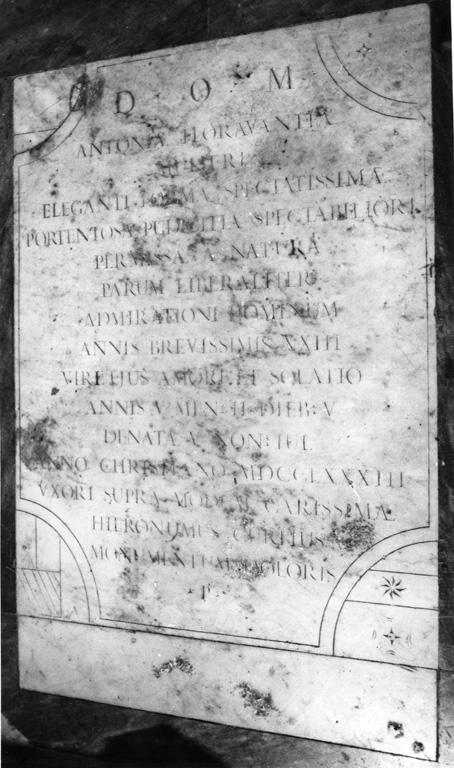 D O M
ANTONIA FIORAVANTIA
MULIERI
ELEGANTI FORMA SPECTATISSIMA
PORTENTOSA PUDICITIA SPECTABILIORI
PERMISSA A NATURA
PARUM LIBERALITER
ADMIRATIONI HOMINUM
ANNIS BREVISSIMIS XXIII
VIRI EIUS AMORI ET SOLATIO
ANNIS V MEN II DIEB V
DENATA V NON IUL
ANNO CHRISTIANO MDCCLXXXIII
VXORI SUPRA MODUM CARISSIMÆ
HIERONYMUS CURTIUS
MONUMENTUM DOLORIS
P